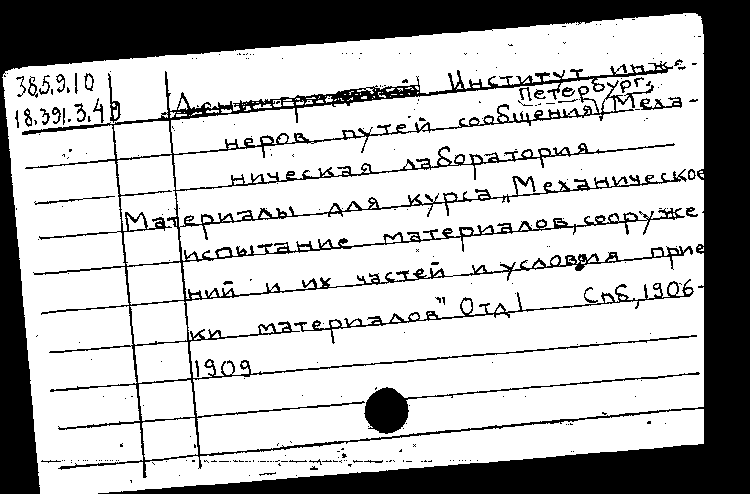 38,5.9.10
18.391.3.49
Ленинградский Институт инже-
Петербург,
неров путей сообщения, Меха-
ническая лаборатория.
Материалы для курса „Механическое
испытание материалов, сооруже-
ний и их частей и условия прием-
ки материалов" Отд I Спб, 1906-
1909.